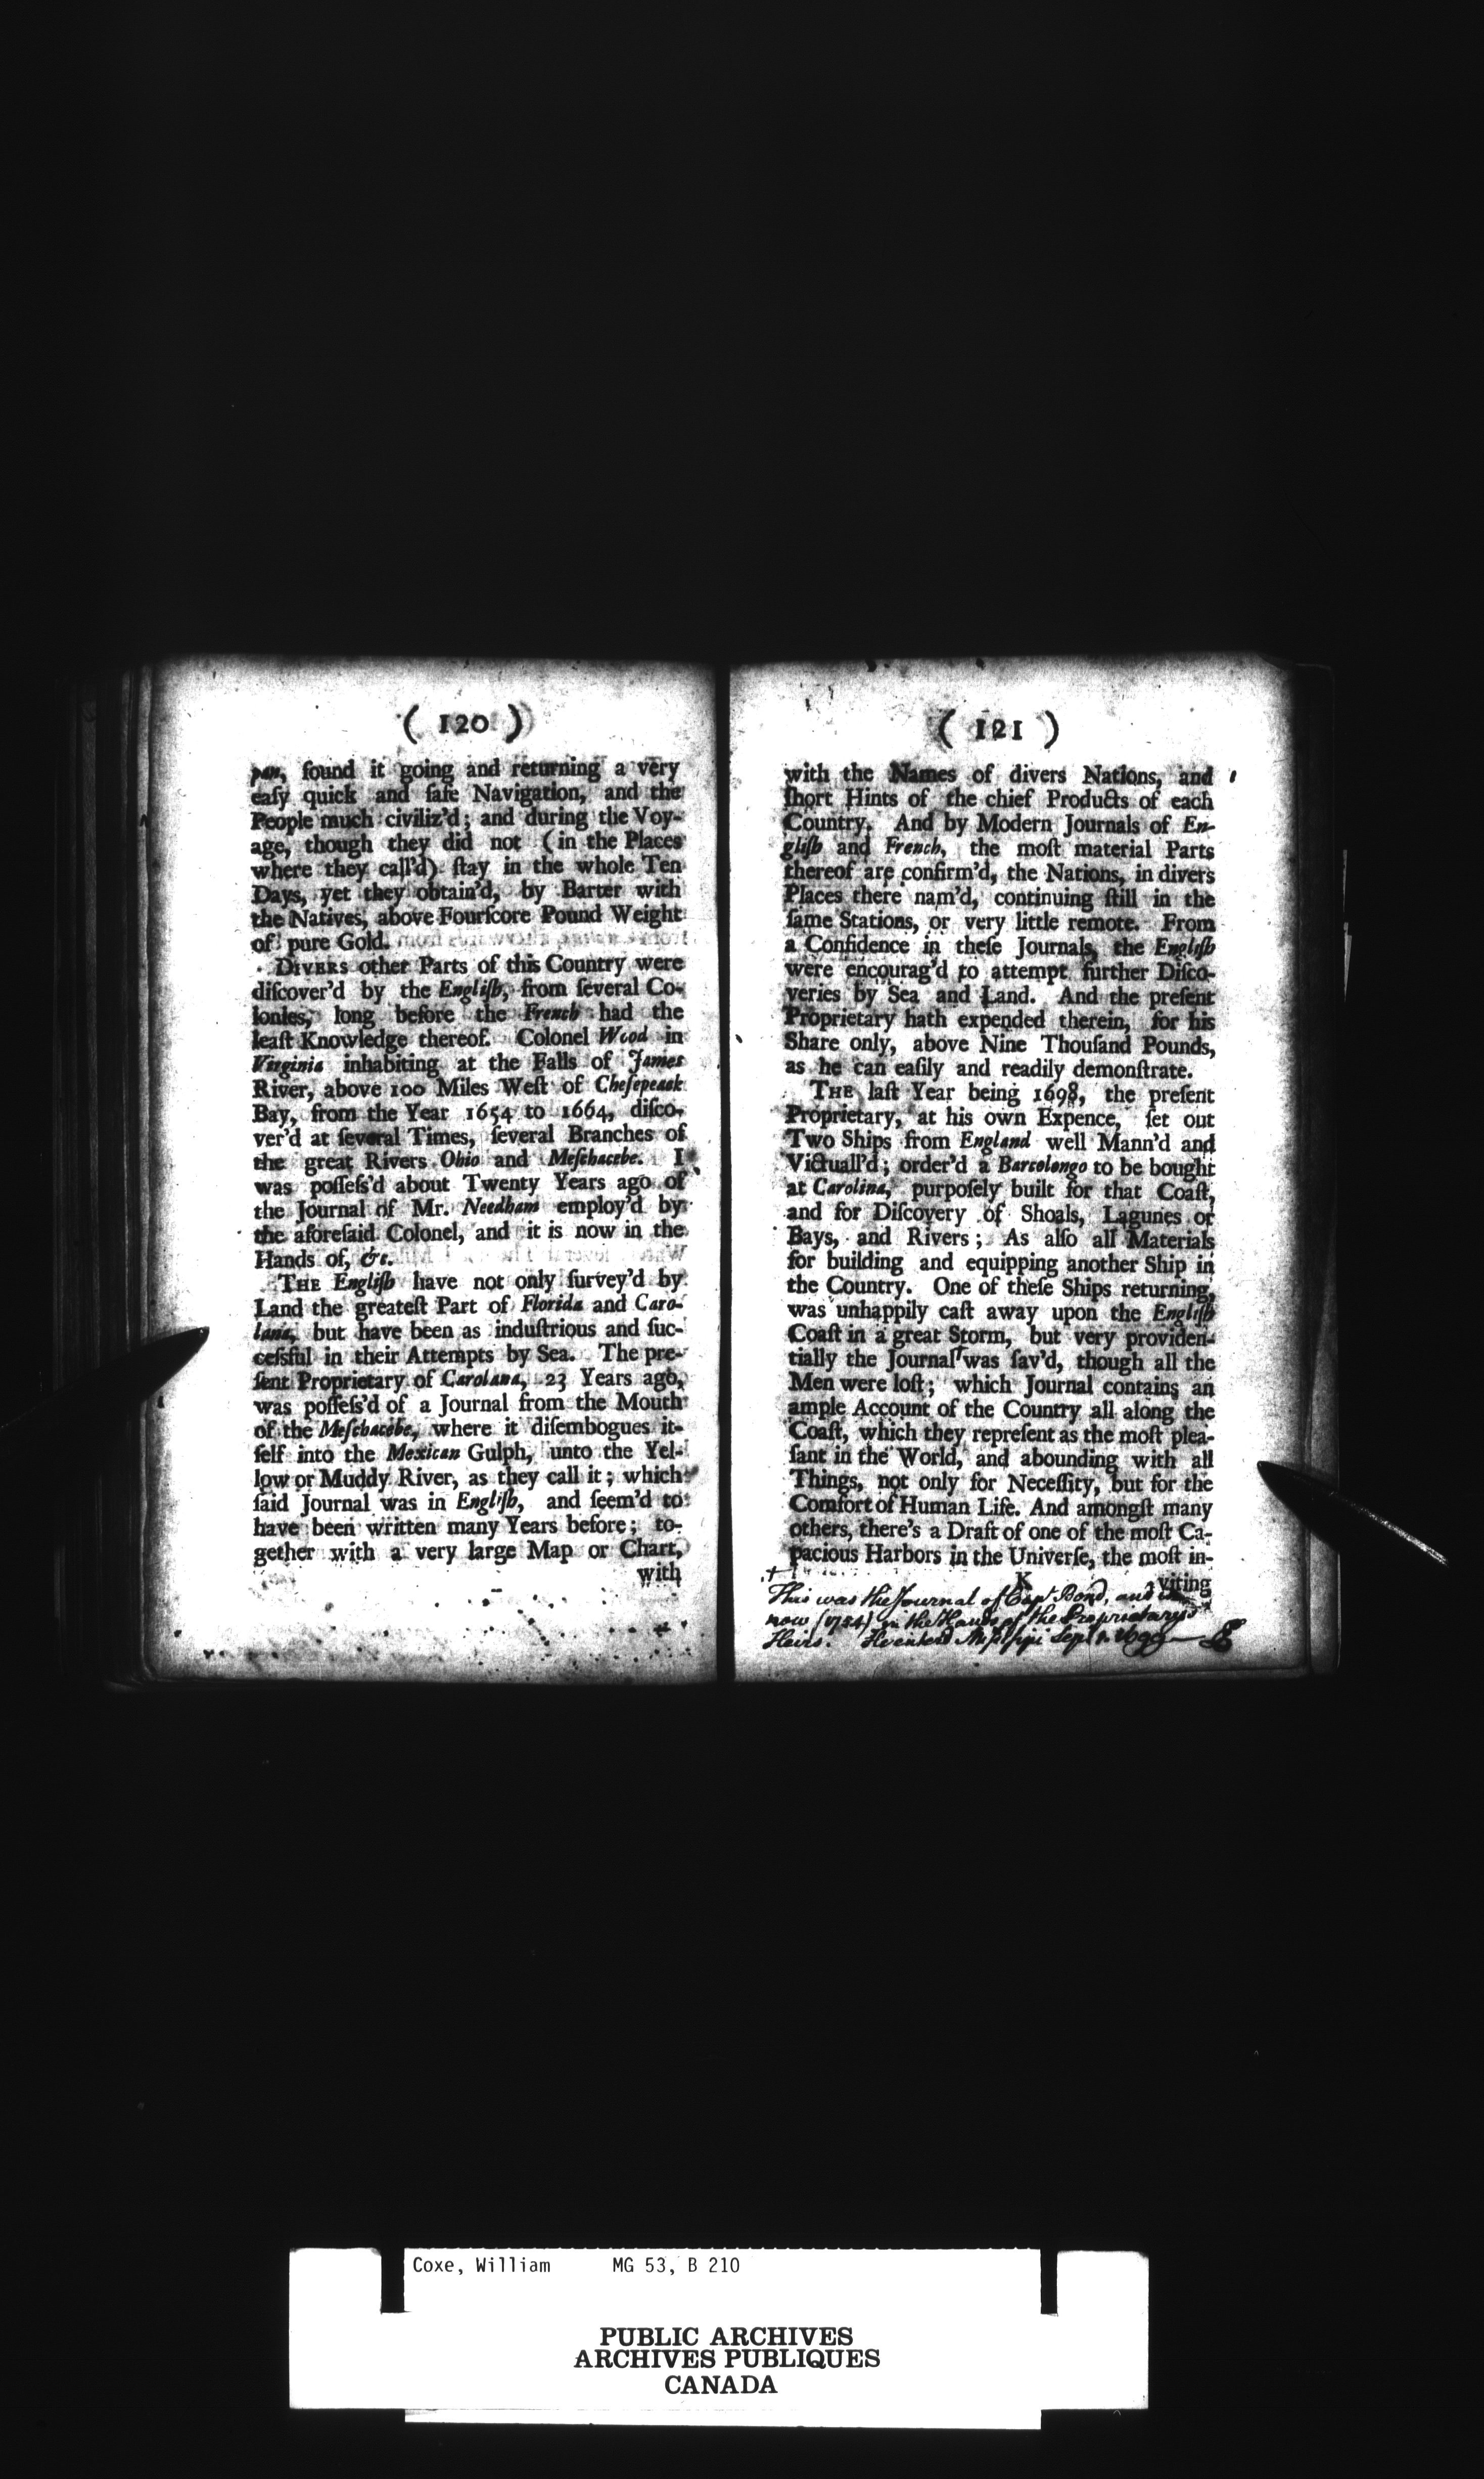 ( 120 )
pan, found it going and returning a very
eaſy quick and ſafe Navigation, and the
People much civiliz'd; and during the Voy-
age, though they did not (in the Places
where they call'd) ſtay in the whole Ten
Days, yet they obtain'd, by Barter with
the Natives, above Fourſcore Pound Weight
of pure Gold.
DIVERS other Parts of this Country were
diſcover'd by the Engliſh, from ſeveral Co-
lonies, long before the French had the
leaſt Knowledge thereof. Colonel Wood in
Virginia inhabiting at the Falls of James
River, above 100 Miles Weſt of Cheſepeack
Bay, from the Year 1654 to 1664, diſco-
ver'd at ſeveral Times, ſeveral Branches of
the great Rivers Ohio and Meſchacebe. I
was poſſeſs'd about Twenty Years ago of
the Journal of Mr. Needham employ'd by
the aforeſaid Colonel, and it is now in the
Hands of, &c.
THE Engliſh have not only ſurvey'd by
Land the greateſt Part of Florida and Caro-
lana, but have been as induſtrious and ſuc-
ceſsful in their Attempts by Sea. The pre-
ſent Proprietary of Carolana, 23 Years ago,
was poſſeſs'd of a Journal from the Mouth
of the Meſchacebe, where it diſembogues it-
ſelf into the Mexican Gulph, unto the Yel-
low or Muddy River, as they call it; which
ſaid Journal was in Engliſh, and ſeem'd to
have been written many Years before; to-
gether with a very large Map or Chart,
with
( 121 )
with the Names of divers Nations, and
ſhort Hints of the chief Products of each
Country. And by Modern Journals of En-
gliſh and French, the moſt material Parts
thereof are confirm'd, the Nations, in divers
Places there nam'd, continuing ſtill in the
ſame Stations, or very little remote. From
a Confidence in theſe Journals, the Engliſh
were encourag'd to attempt further Diſco-
veries by Sea and Land. And the preſent
Proprietary hath expended therein, for his
Share only, above Nine Thouſand Pounds,
as he can eaſily and readily demonſtrate.
THE laſt Year being 1698, the preſent
Proprietary, at his own Expence, ſet out
Two Ships from England well Mann'd and
Victuall'd; order'd a Barcolongo to be bought
at Carolina, purpoſely built for that Coaſt,
and for Diſcovery of Shoals, Lagunes or
Bays, and Rivers; As alſo all Materials
for building and equipping another Ship in
the Country. One of theſe Ships returning,
was unhappily caſt away upon the Engliſh
Coaſt in a great Storm, but very providen-
tially the Journal† was ſav'd, though all the
Men were loſt; which Journal contains an
ample Account of the Country all along the
Coaſt, which they repreſent as the moſt plea-
ſant in the World, and abounding with all
Things, not only for Neceſſity, but for the
Comfort of Human Life. And amongſt many
others, there's a Draft of one of the moſt Ca-
pacious Harbors in the Univerſe, the moſt in-
K viting
† This was the Journal of Capt Bond, and is
now (1754) in the Hands of the Proprietarys
Heirs. He enterd Miſsiſsipi Sept. 1699
Coxe, William MG 53, B 210
PUBLIC ARCHIVES
ARCHIVES PUBLIQUES
CANADA